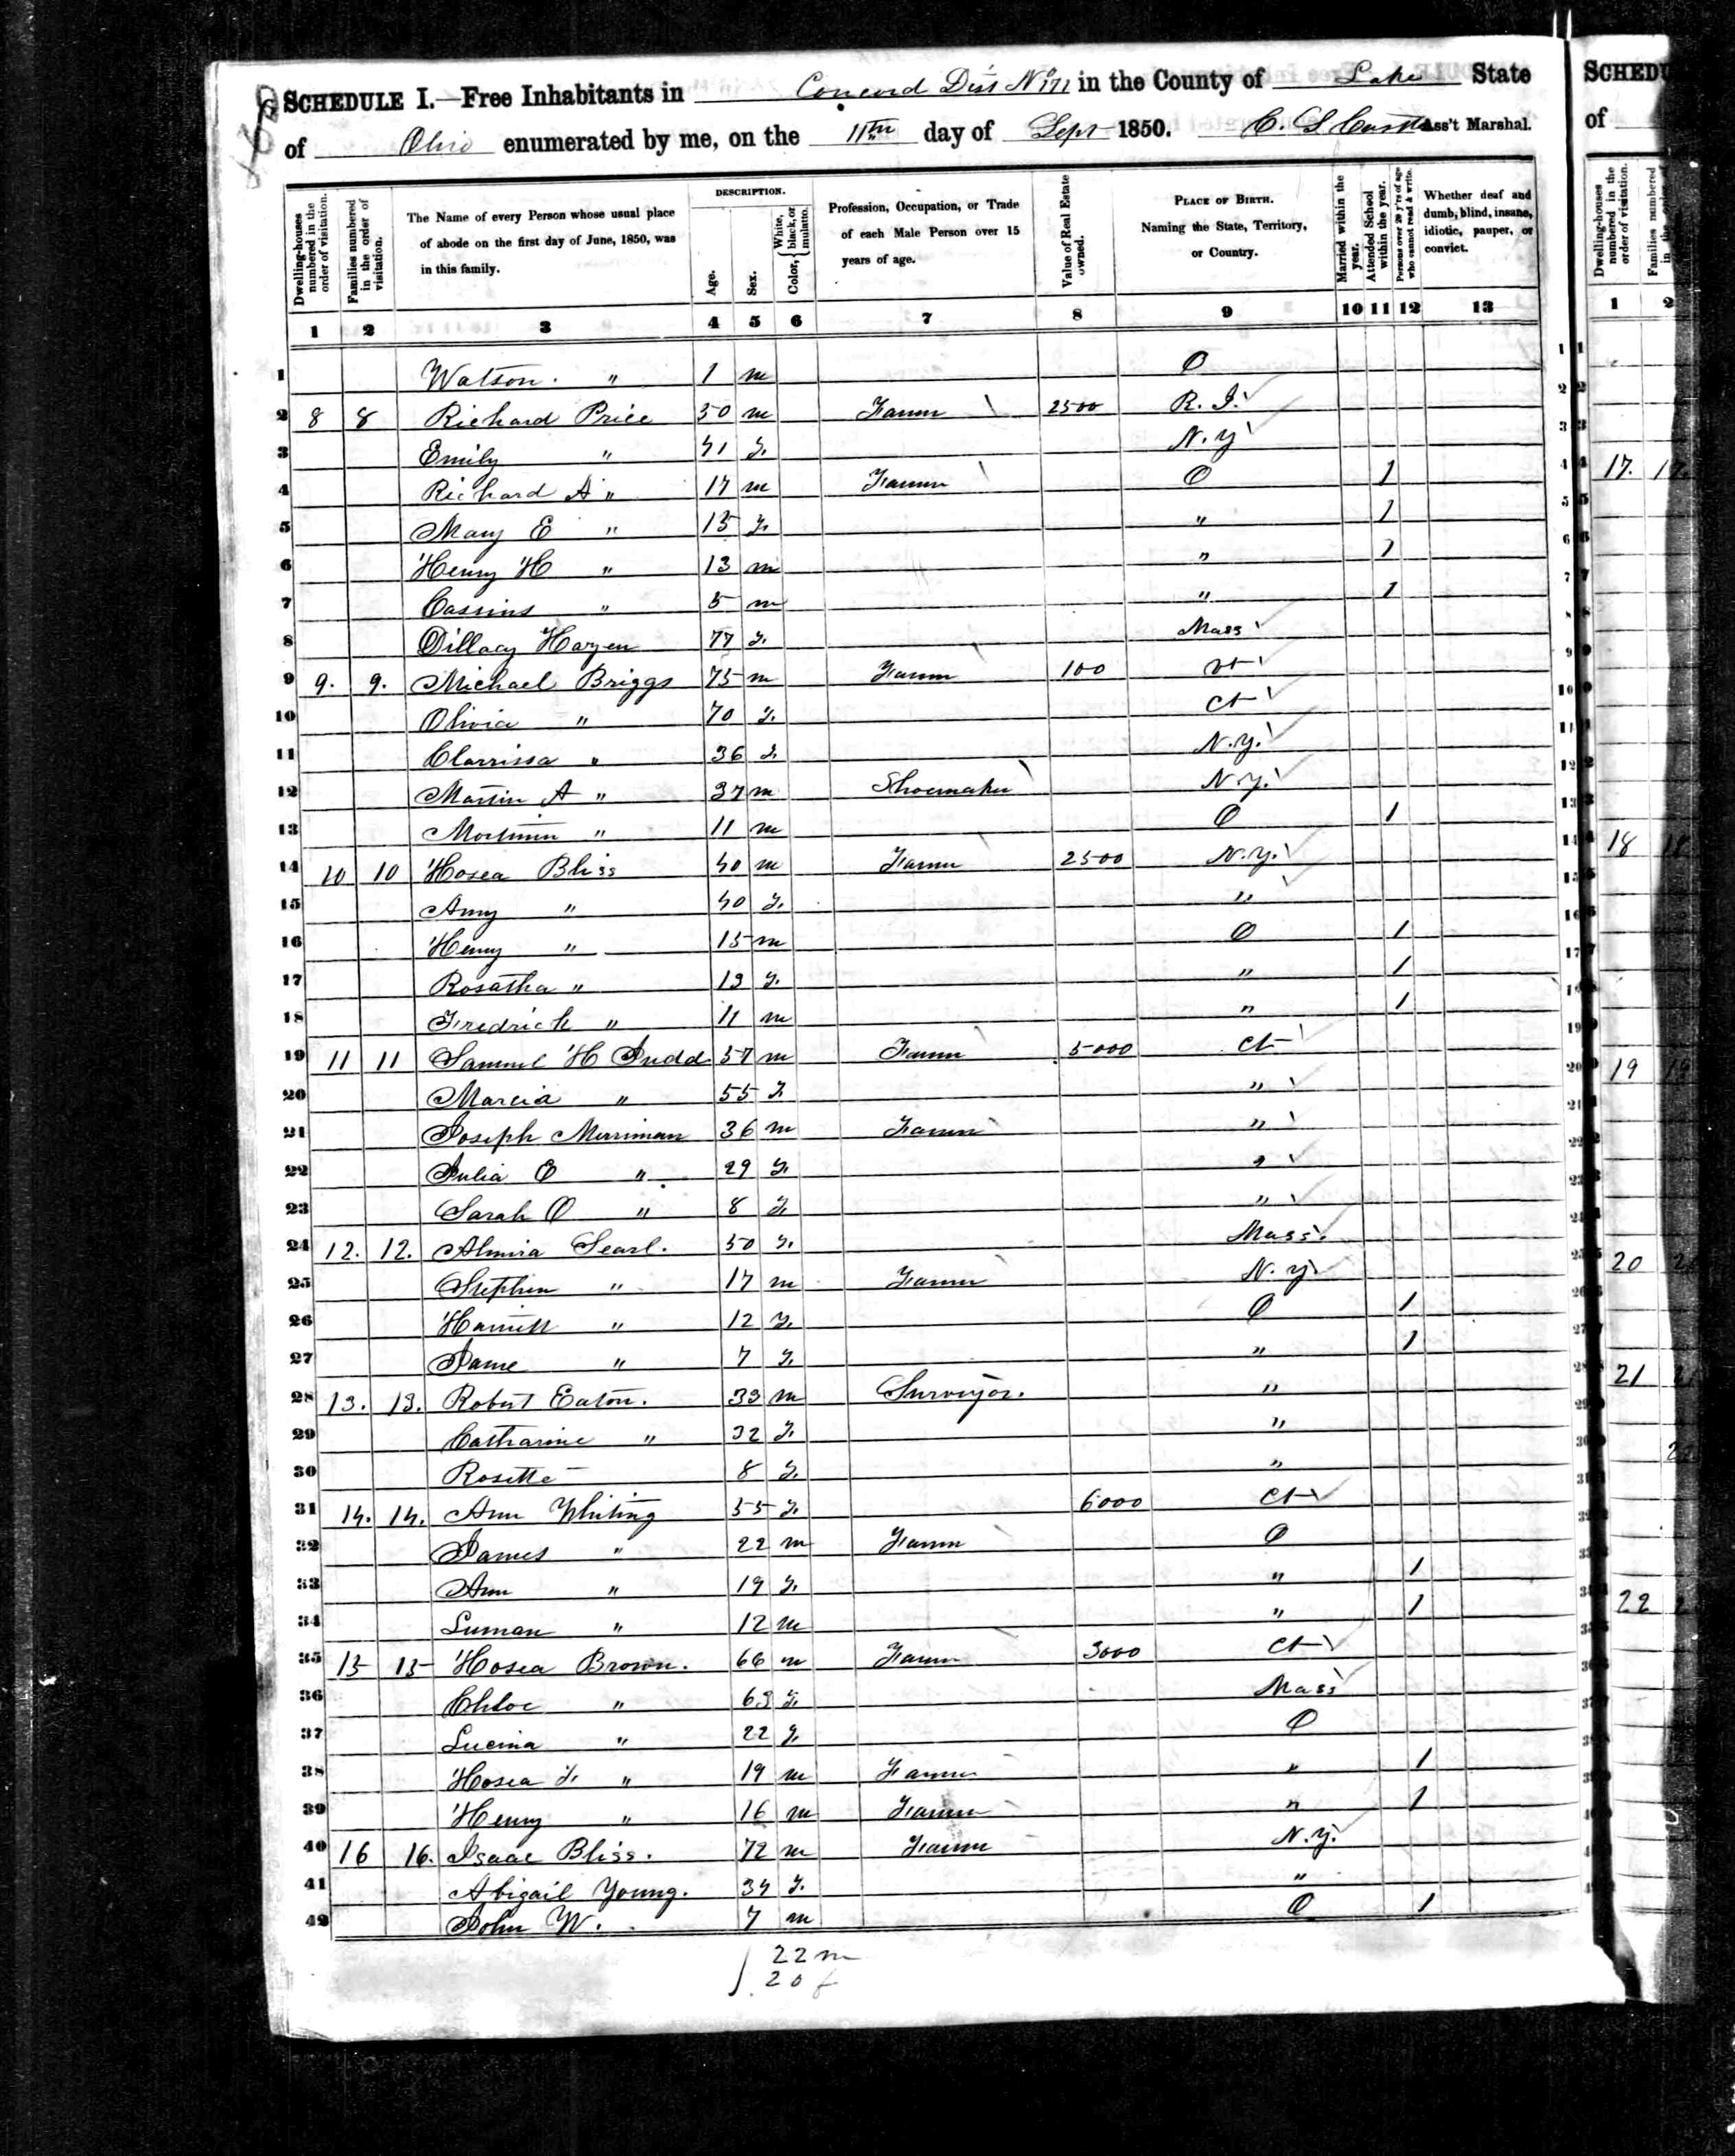 SCHEDULE I.—Free Inhabitants in Concord Dist No 71 in the County of Lake State
of Ohio enumerated by me, on the 11th day of Sept 1850. C. S. Ass't Marshal.
Dwelling-houses numbered in the order of visitation. Families numbered in the order of visitation. The Name of every Person whose usual place of abode on the first day of June, 1850, was in this family. DESCRIPTION. Age. Sex. Color, White, black, or mulatto. Profession, Occupation, or Trade of each Male Person over 15 years of age. Value of Real Estate owned. PLACE OF BIRTH. Naming the State, Territory, or Country. Married within the year. Attended School within the year. Persons over 20 y'rs of age who cannot read & write. Whether deaf and dumb, blind, insane, idiotic, pauper, or convict.
1 2 3 4 5 6 7 8 9 10 11 12 13
1 Watson " 1 m O
2 8 8 Richard Price 50 m Farmer 2500 R. I.
3 Emily " 41 F. N. Y
4 Richard A " 17 m Farmer O 1
5 Mary E " 15 F. " 1
6 Henry H " 13 m " 1
7 Cassius " 5 m " 1
8 Hazen 77 F. Mass
9 9. 9. Michael Briggs 75 m Farmer 100 Vt
10 Olivia " 70 F. Ct
11 Clarrissa " 36 F. N. Y.
12 Martin A " 37 m Shoemaker N. Y.
13 Mortimer " 11 m O 1
14 10 10 Hosea Bliss 40 m Farmer 2500 N. Y.
15 Amy " 40 F. "
16 Henry " 15 m O 1
17 Rosatha " 13 F. " 1
18 Fredrick " 11 m " 1
19 11 11 Samuel H Judd 57 m Farmer 5000 Ct
20 Marcia " 55 F. "
21 Joseph Merriman 36 m Farmer "
22 Julia O " 29 F. "
23 Sarah O " 8 F. "
24 12. 12. Almira Searl. 50 F. Mass.
25 Stephen " 17 m Farmer N. Y
26 Harriett " 12 F. O 1
27 Jane " 7 F. " 1
28 13. 13. Robert Eaton. 33 m Surveyor. "
29 Catharine " 32 F. "
30 Rosette 8 F. "
31 14. 14. Ann Whiting 55 F. 6000 Ct
32 James " 22 m Farmer O
33 Ann " 19 F. " 1
34 Luman " 12 m " 1
35 15 15 Hosea Brown. 66 m Farmer 3000 Ct
36 Chloe " 63 F. Mass
37 Lucina " 22 F. O
38 Hosea F. " 19 m Farmer " 1
39 Henry " 16 m Farmer " 1
40 16 16. Isaac Bliss. 72 m Farmer N. Y.
41 Abigail Young. 34 F. "
42 John W. 7 m O 1
22 m
20 f
SCHEDU
of
Dwelling-houses numbered in the order of visitation. Families numbered
1 2
17.
18
19
20
21
22